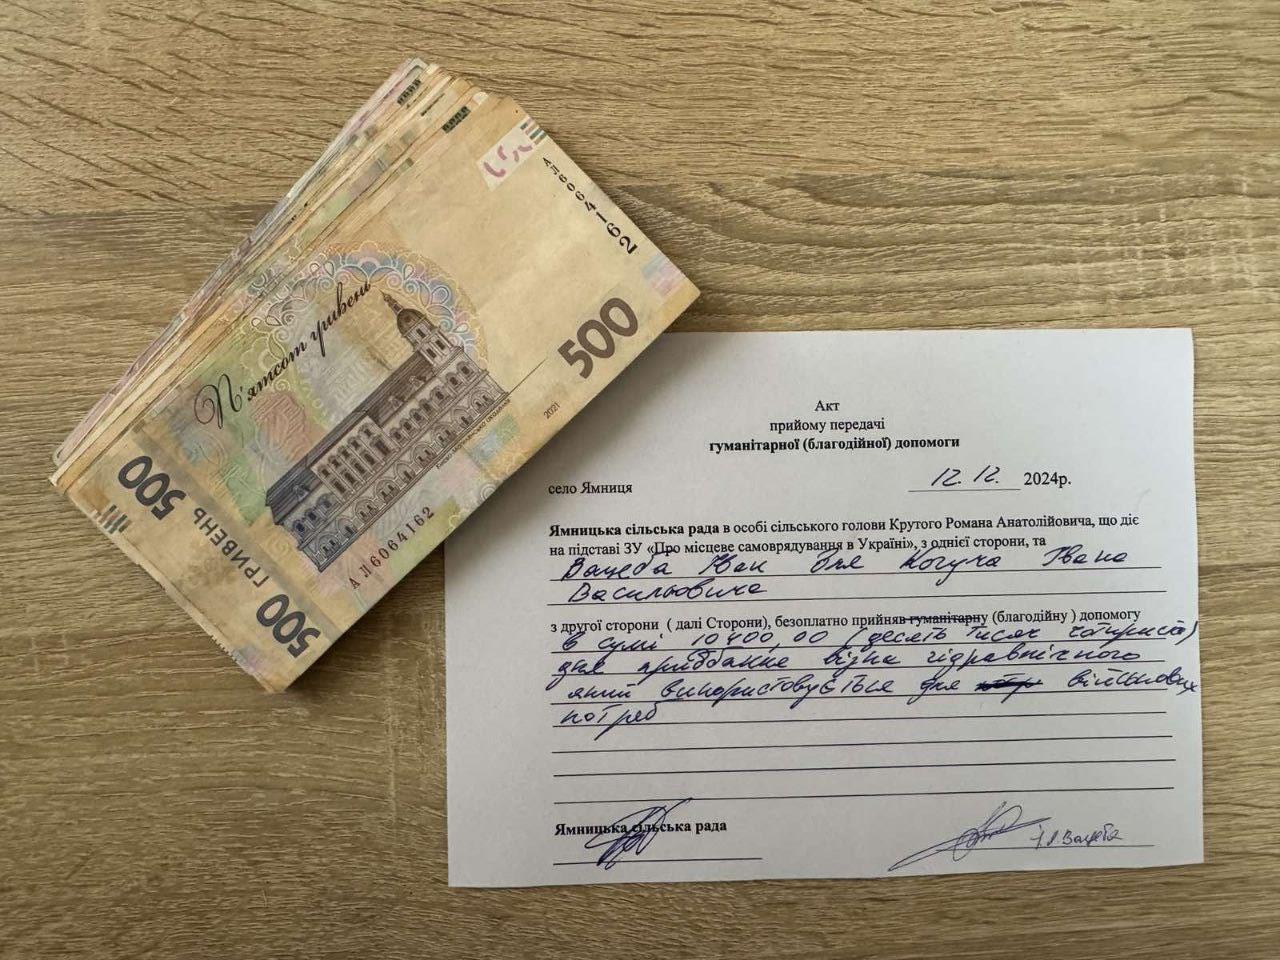 П'ятсот гривень
500
500
ГРИВЕНЬ
500
АЛ6064162
АЛ6064162
2021
Акт
прийому передачі
гуманітарної (благодійної) допомоги
село Ямниця
12. 12. 2024р.
Ямницька сільська рада в особі сільського голови Крутого Романа Анатолійовича, що діє
на підставі ЗУ «Про місцеве самоврядування в Україні», з однієї сторони, та
Вацеба Іван для Когута Івана
Васильовича
з другої сторони ( далі Сторони), безоплатно прийняв гуманітарну (благодійну ) допомогу
в сумі 10400,00 (десять тисяч чотириста)
для придбання візка гідравлічного
який використовується для військових
потреб
Ямницька сільська рада
І.Я. Вацеба